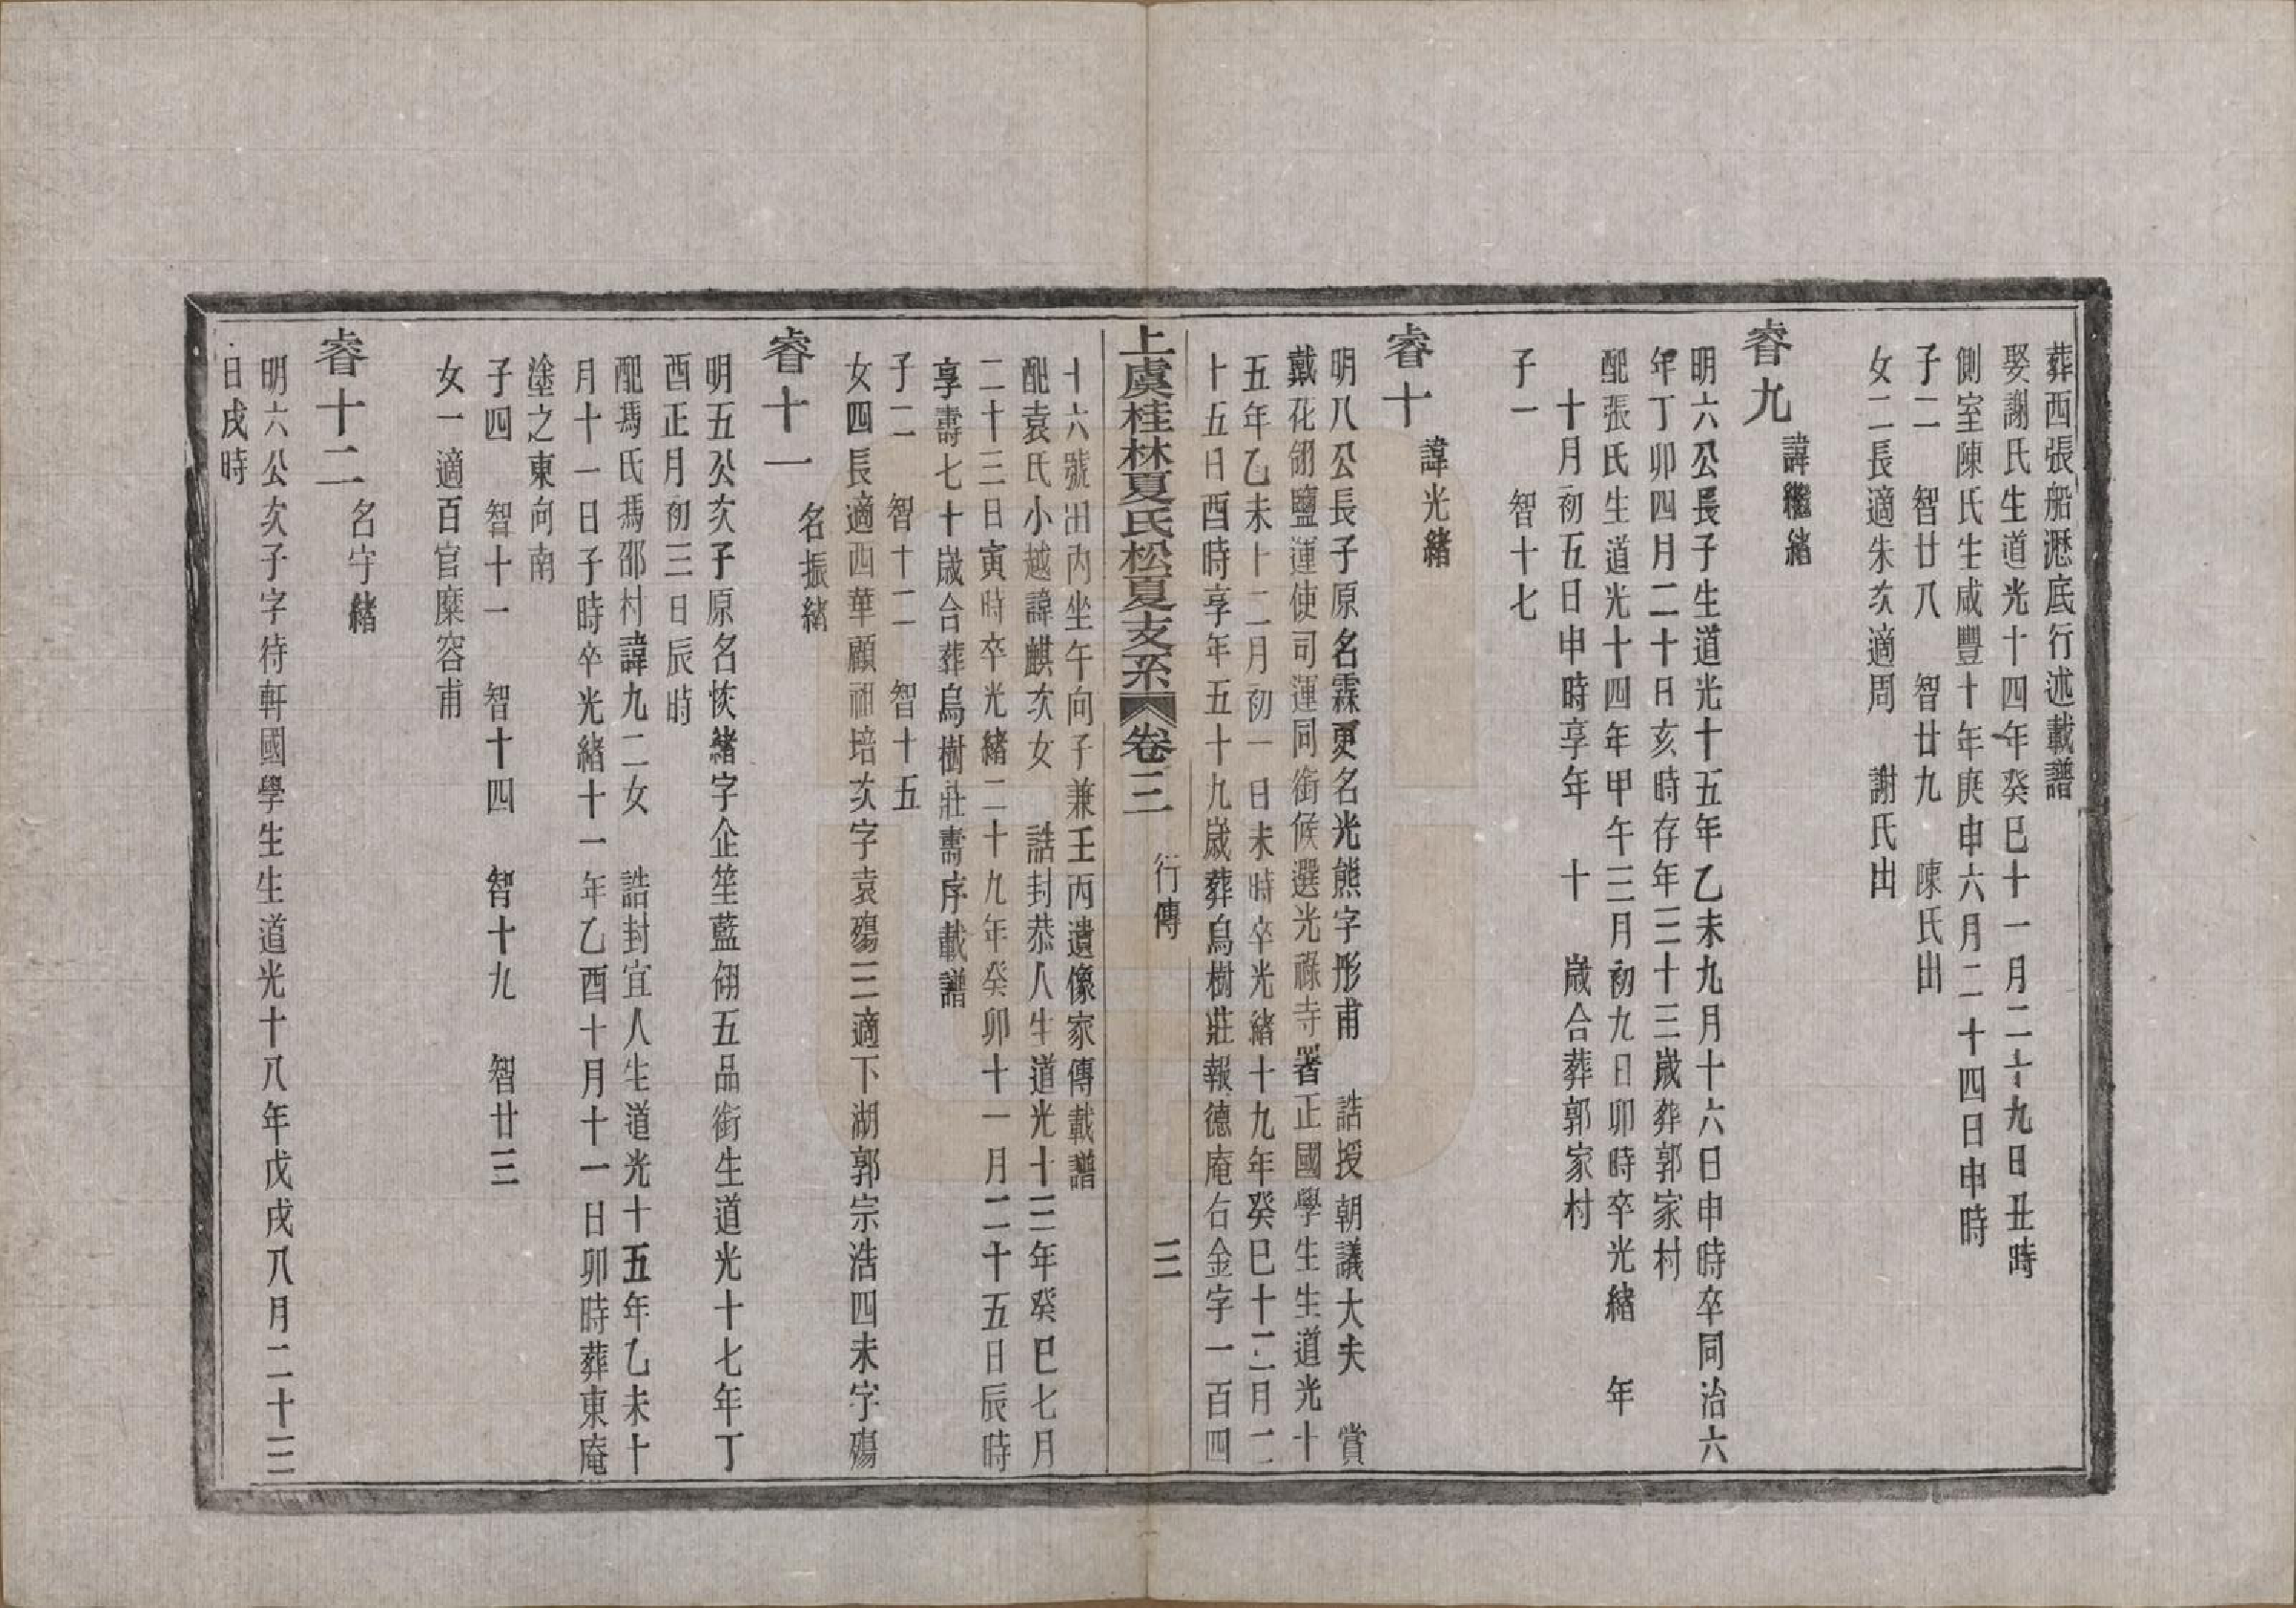 葬西張船瀝底行述載譜
娶謝氏生道光十四年癸巳十一月二十九日丑時
側室陳氏生咸豐十年庚申六月二十四日申時
子二　智廿八　智廿九　陳氏出
女二長適朱次適周　謝氏出
睿九
諱繼緒
明六公長子生道光十五年乙未九月十六日申時卒同治六
年丁卯四月二十日亥時存年三十三歲葬郭家村
配張氏生道光十四年甲午三月初九日卯時卒光緒　年
十月初五日申時享年　十　歲合葬郭家村
子一　智十七
睿十
諱光緒
明八公長子原名霖更名光熊字彤甫　誥授朝議大夫　賞
戴花翎鹽運使司運同銜候選光祿寺署正國學生生道光十
五年乙未十二月初一日未時卒光緒十九年癸巳十二月二
十五日酉時享年五十九歲葬烏樹莊報德庵右金字一百四
上虞桂林夏氏松夏支系　卷三　行傳　三
十六號出丙坐午向子兼壬丙遺像家傳載譜
配袁氏小越諱麒次女　誥封恭人生道光十三年癸巳七月
二十三日寅時卒光緒二十九年癸卯十一月二十五日辰時
享壽七十歲合葬烏樹莊壽序載譜
子二　智十二　智十五
女四長適西華顧祖培次字袁殤三適下湖郭宗浩四未字殤
睿十一
名振緒
明五公次子原名恢緒字企笙藍翎五品銜生道光十七年丁
酉正月初三日辰時
配馮氏馮邵村諱九二女　誥封宜人生道光十五年乙未十
月十一日子時卒光緒十一年乙酉十月十一日卯時葬東庵
塗之東向南
子四　智十一　智十四　智十九　智廿三
女一適百官糜容甫
睿十二
名守緒
明六公次子字待軒國學生生道光十八年戊戌八月二十三
日戌時